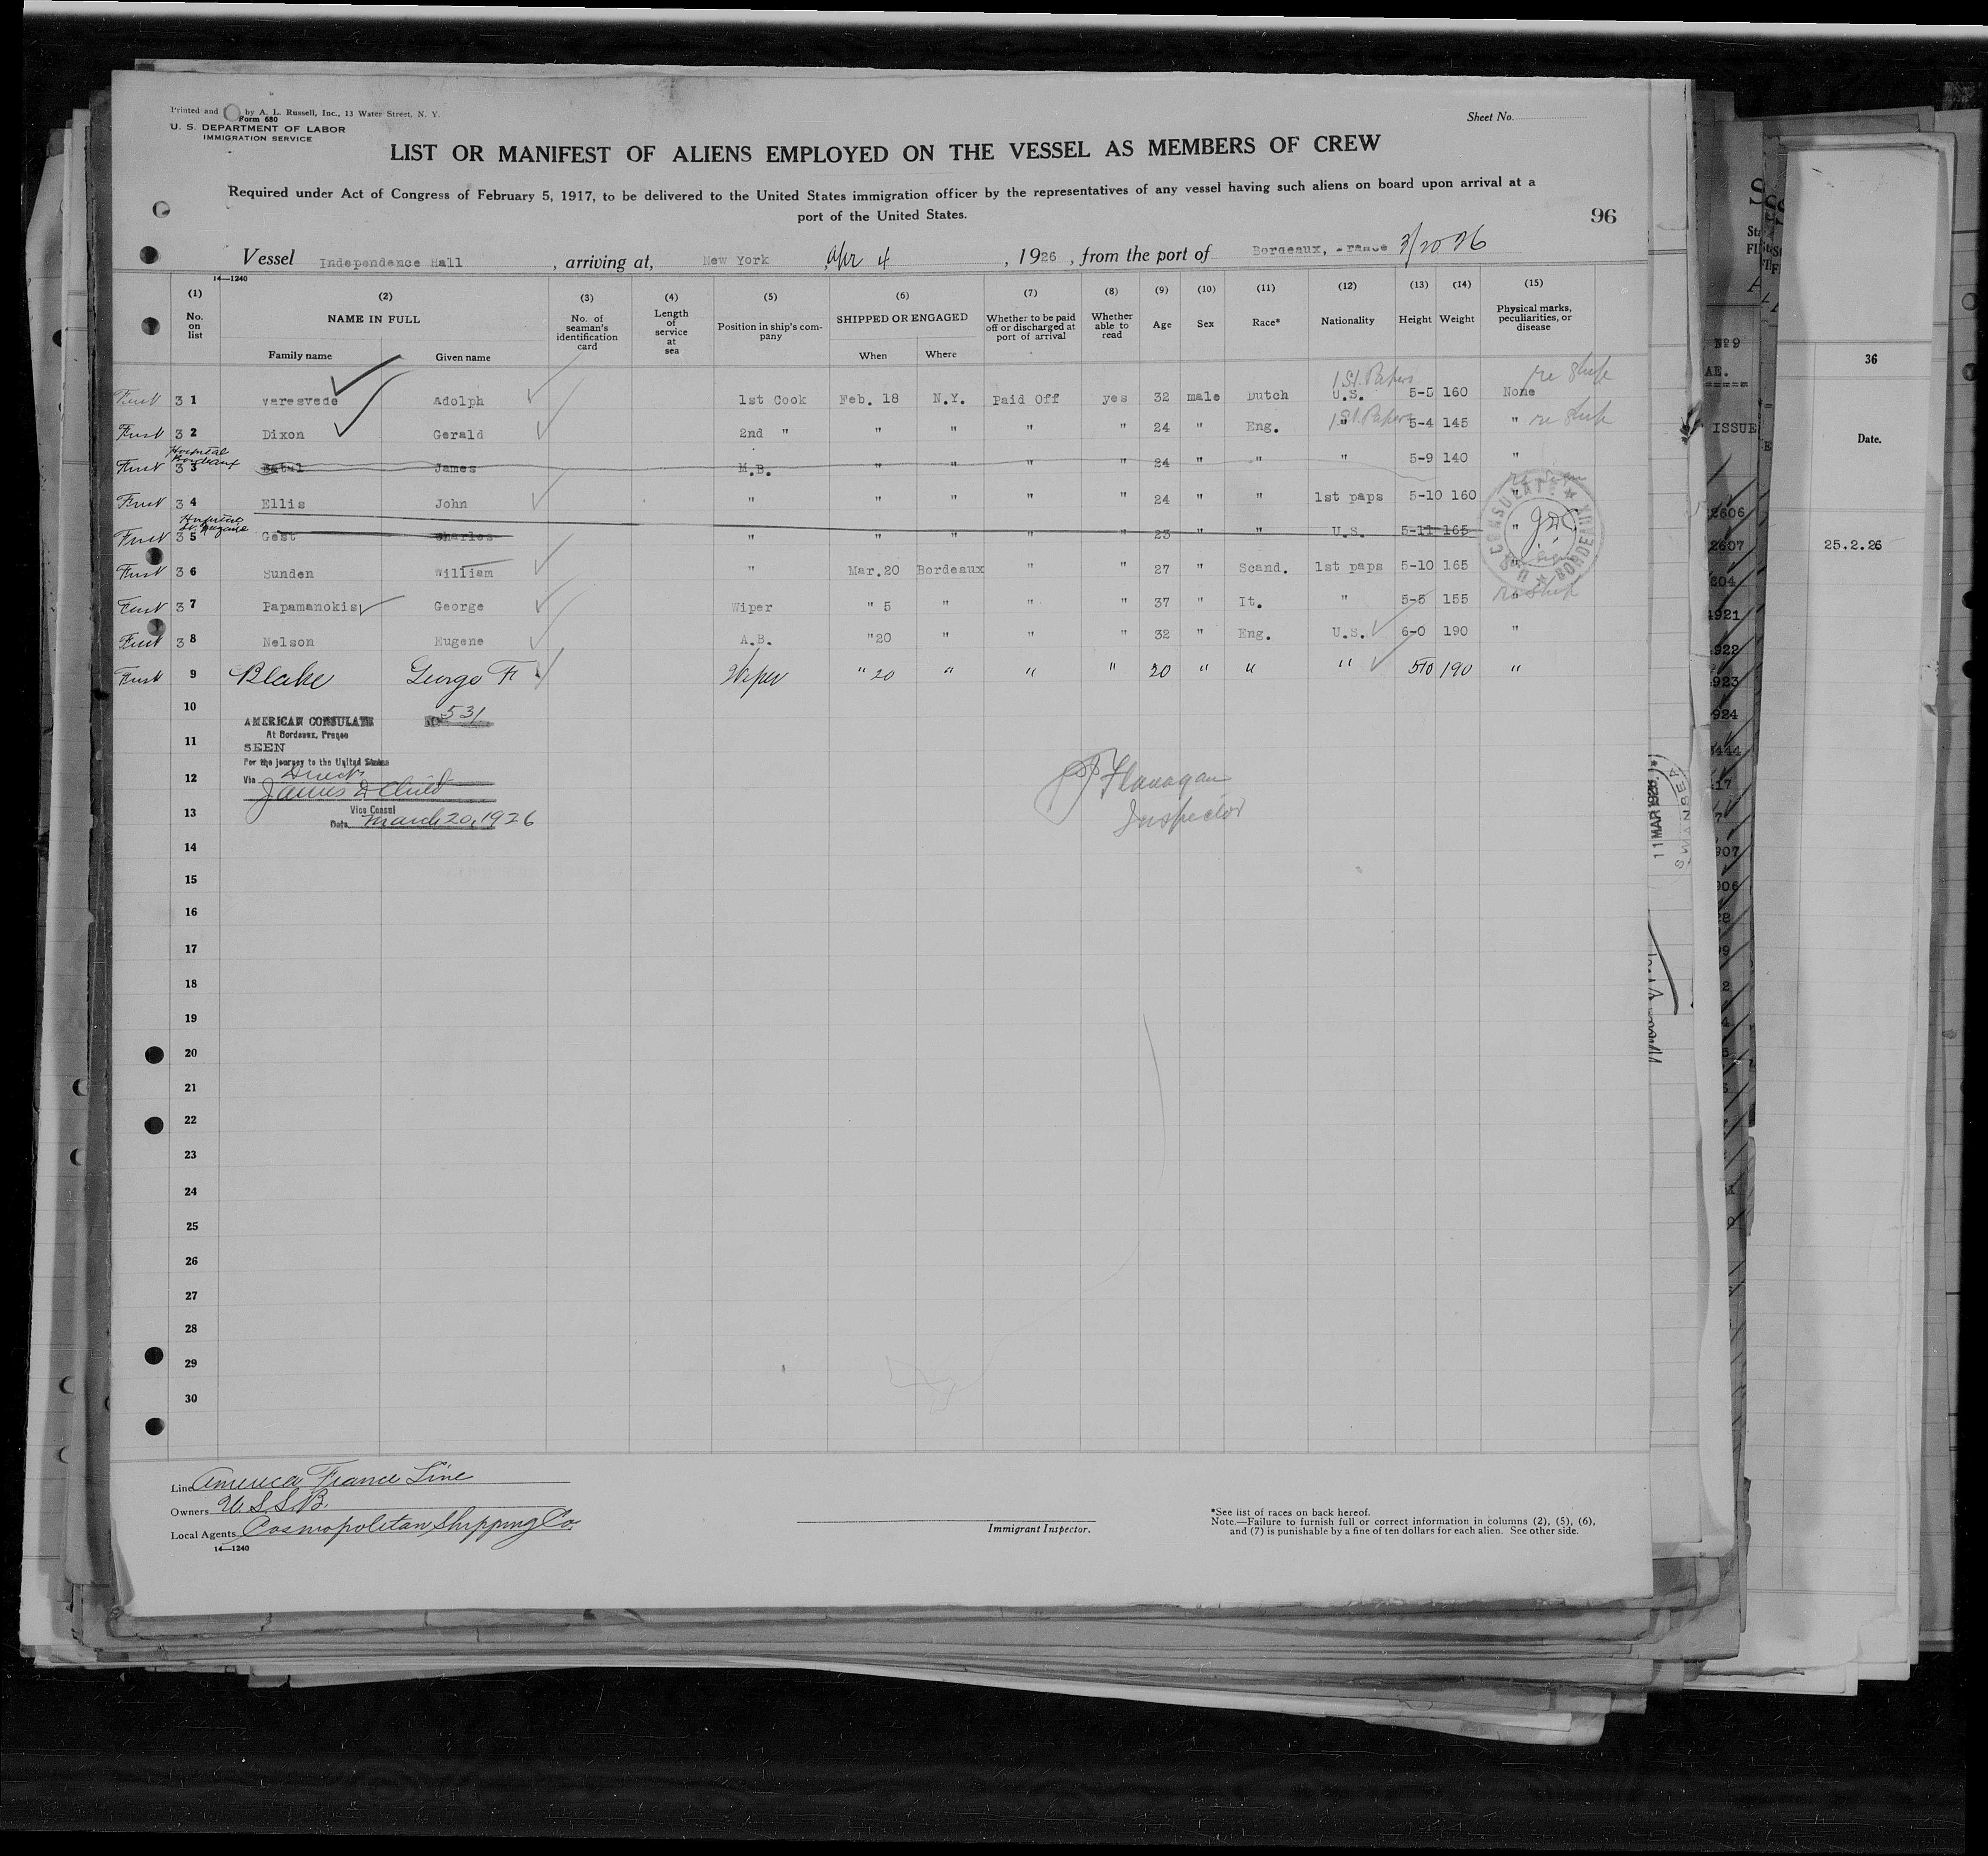 Printed and by A. L. Russell, Inc., 13 Water Street, N. Y.
Form 680
U. S. DEPARTMENT OF LABOR
IMMIGRATION SERVICE
Sheet No.
LIST OR MANIFEST OF ALIENS EMPLOYED ON THE VESSEL AS MEMBERS OF CREW
Required under Act of Congress of February 5, 1917, to be delivered to the United States immigration officer by the representatives of any vessel having such aliens on board upon arrival at a
port of the United States.
96
Vessel Independence Hall, arriving at, New York, Apr 4, 1926, from the port of Bordeaux, France 3/20 26
14—1240
(1) No. on list
(2) NAME IN FULL Family name Given name
(3) No. of seaman's identification card
(4) Length of service at sea
(5) Position in ship's company
(6) SHIPPED OR ENGAGED When Where
(7) Whether to be paid off or discharged at port of arrival
(8) Whether able to read
(9) Age
(10) Sex
(11) Race*
(12) Nationality
(13) Height
(14) Weight
(15) Physical marks, peculiarities, or disease
1st. Papers re ship
3 1 Varesvede Adolph 1st Cook Feb. 18 N.Y. Paid Off yes 32 male Dutch U.S. 5-5 160 None
3 2 Dixon Gerald 2nd " " " " " 24 " Eng. 1st. Papers " 5-4 145 " re ship
Hospital Bordeaux
3 3 James M.B. " " " " 24 " " " 5-9 140 "
3 4 Ellis John " " " " " 24 " " 1st paps 5-10 160 "
Hospital
3 5 Gest Charles " " " " " 23 " " U.S. 5-11 165 "
3 6 Sunden William " Mar.20 Bordeaux " " 27 " Scand. 1st paps 5-10 165 "
3 7 Papamanokis George Wiper " 5 " " " 37 " It. " 5-5 155 " re ship
3 8 Nelson Eugene A.B. "20 " " " 32 " Eng. U.S. 6-0 190 "
9 Blake George F Wiper " 20 " " " 20 " " " 5 10 190 "
U.S. CONSULATE ★ BORDEAUX ★
10
11
12
13
14
15
16
17
18
19
20
21
22
23
24
25
26
27
28
29
30
AMERICAN CONSULATE
No 531
At Bordeaux, France
SEEN
For the journey to the United States
Via Direct
James D Child
Vice Consul
Date March 20, 1926
Flanagan
Inspector
Line America France Line
Owners U.S.S.B.
Local Agents Cosmopolitan Shipping Co.
14—1240
Immigrant Inspector.
*See list of races on back hereof.
Note.—Failure to furnish full or correct information in columns (2), (5), (6),
and (7) is punishable by a fine of ten dollars for each alien. See other side.
11 MAR 1926
SWANSEA
Nº 9
ISSUE
2606
2607
36
Date.
25.2.26